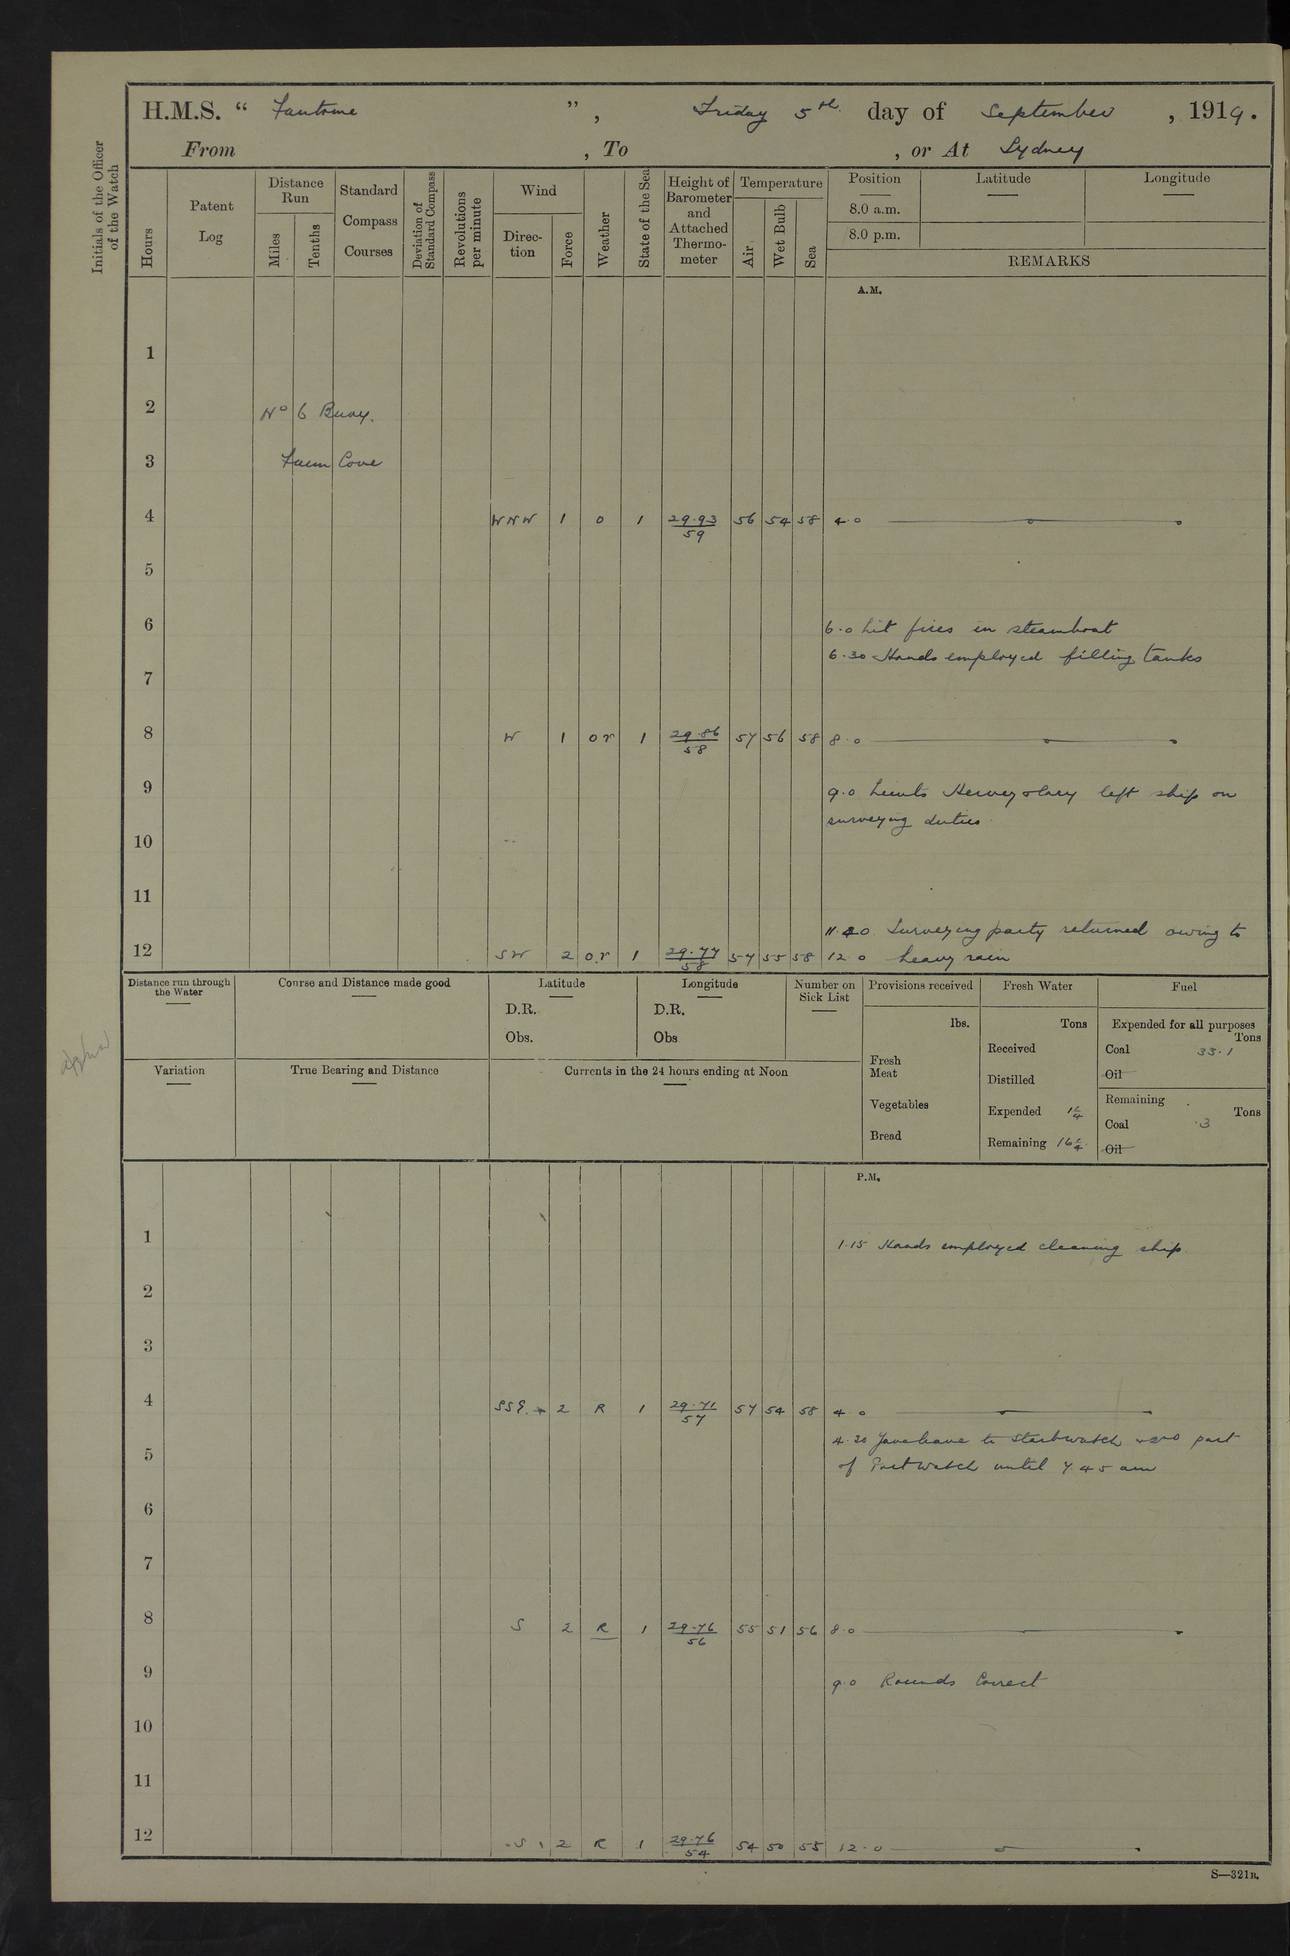 H.M.S. “ Fantome ”, Friday 5th day of September, 1919.
From , To , or At Sydney
Initials of the Officer of the Watch
Hours
Patent Log
Distance Run
Miles
Tenths
Standard Compass Courses
Deviation of Standard Compass
Revolutions per minute
Wind
Direction
Force
Weather
State of the Sea
Height of Barometer and Attached Thermometer
Temperature
Air
Wet Bulb
Sea
Position
8.0 a.m.
8.0 p.m.
Latitude
Longitude
REMARKS
A.M.
1
2 No 6 Buoy.
3 Farm Cove
4 WNW 1 o 1 29.93/59 56 54 58 4.0
5
6 6.0 Lit fires in steamboat
6.30 Hands employed filling tanks
7
8 W 1 or 1 29.86/58 57 56 58 8.0
9 9.0 Lieuts left ship on
surveying duties
10
11
11.20 Surveying party returned owing to
12 SW 2 o.r 1 29.77/58 57 55 58 12.0 heavy rain
Distance run through the Water
Course and Distance made good
Latitude
D.R.
Obs.
Longitude
D.R.
Obs
Number on Sick List
Provisions received
lbs.
Fresh Meat
Vegetables
Bread
Fresh Water
Tons
Received
Distilled
Expended 1¼
Remaining 16¼
Fuel
Expended for all purposes
Tons
Coal 33.1
Oil
Remaining
Tons
Coal .3
Oil
Variation
True Bearing and Distance
Currents in the 24 hours ending at Noon
P.M.
1 1.15 Hands employed cleaning ship
2
3
4 SSE. 2 R 1 29.71/57 57 54 58 4.0
4.30 Gave leave to Starbwatch and part
5 of Port watch until 7.45 am
6
7
8 S 2 R 1 29.76/56 55 51 56 8.0
9 9.0 Rounds Correct
10
11
12 S 2 R 1 29.76/54 54 50 55 12.0
S—321B.